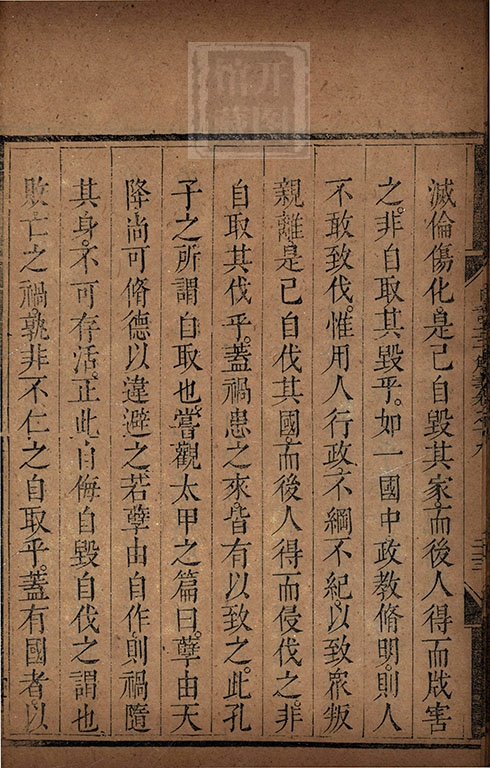 滅倫傷化是己自毀其家而後人得而戕害
之。非自取其毀乎。如一國中政教脩明。則人
不敢致伐。惟用人行政不綱不紀。以致眾叛
親離。是己自伐其國。而後人得而侵伐之。非
自取其伐乎。蓋禍患之來皆有以致之。此孔
子之所謂自取也。嘗觀太甲之篇曰。孽由天
降尚可脩德以違避之。若孽由自作。則禍隨
其身。不可存活。正此自侮自毀自伐之謂也
敗亡之禍。孰非不仁之自取乎。蓋有國者以
開图
馆藏